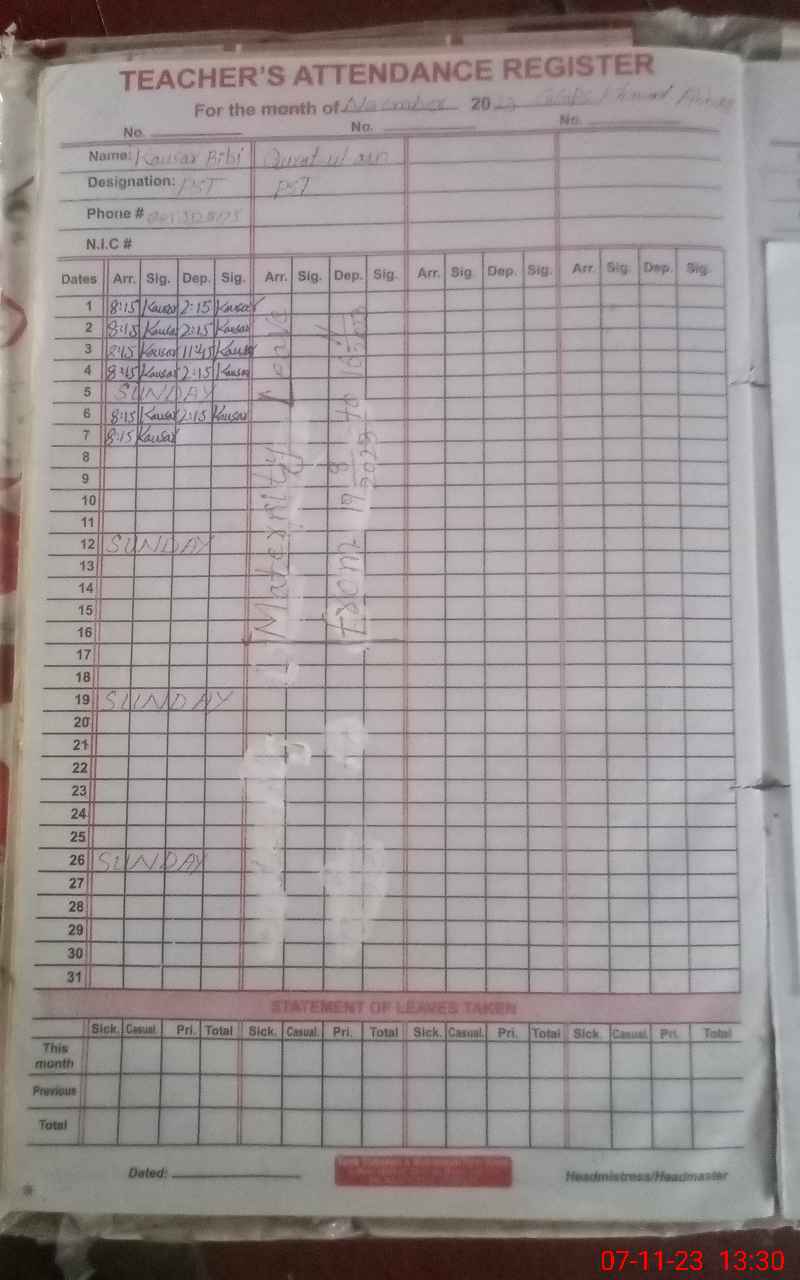 TEACHER'S ATTENDANCE REGISTER
For the month of November 2023
No. No. No.
Name: Kausar Bibi Qurat ul ain
Designation: PST PST
Phone #
N.I.C #
Dates Arr. Sig. Dep. Sig. Arr. Sig. Dep. Sig. Arr. Sig. Dep. Sig. Arr. Sig. Dep. Sig.
1 8:15 Kausar 2:15 Kausar
2 8:15 Kausar 2:15 Kausar
3 8:15 Kausar 11:45 Kausar
4 8:15 Kausar 2:15 Kausar
5 SUNDAY
6 8:15 Kausar 2:15 Kausar
7 8:15 Kausar
8
9
10
11
12 SUNDAY
13
14
15
16
17
18
19 SUNDAY
20
21
22
23
24
25
26 SUNDAY
27
28
29
30
31
Maternity Leave
From 19 8 2023 to
STATEMENT OF LEAVES TAKEN
Sick. Casual. Pri. Total Sick. Casual. Pri. Total Sick. Casual. Pri. Total Sick. Casual. Pri. Total
This month
Previous
Total
Dated: Headmistress/Headmaster
07-11-23 13:30